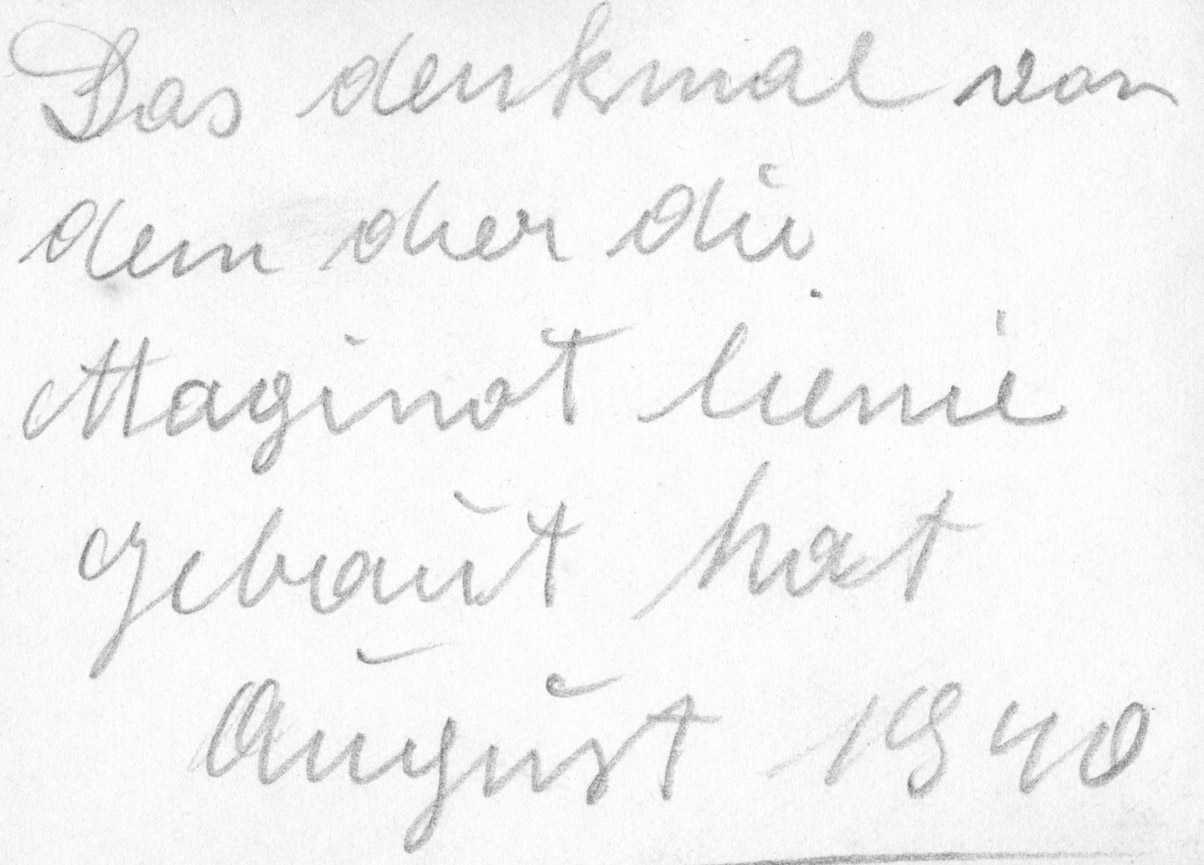 Das denkmal von
dem der die
Maginot lienie
gebaut hat
August 1940